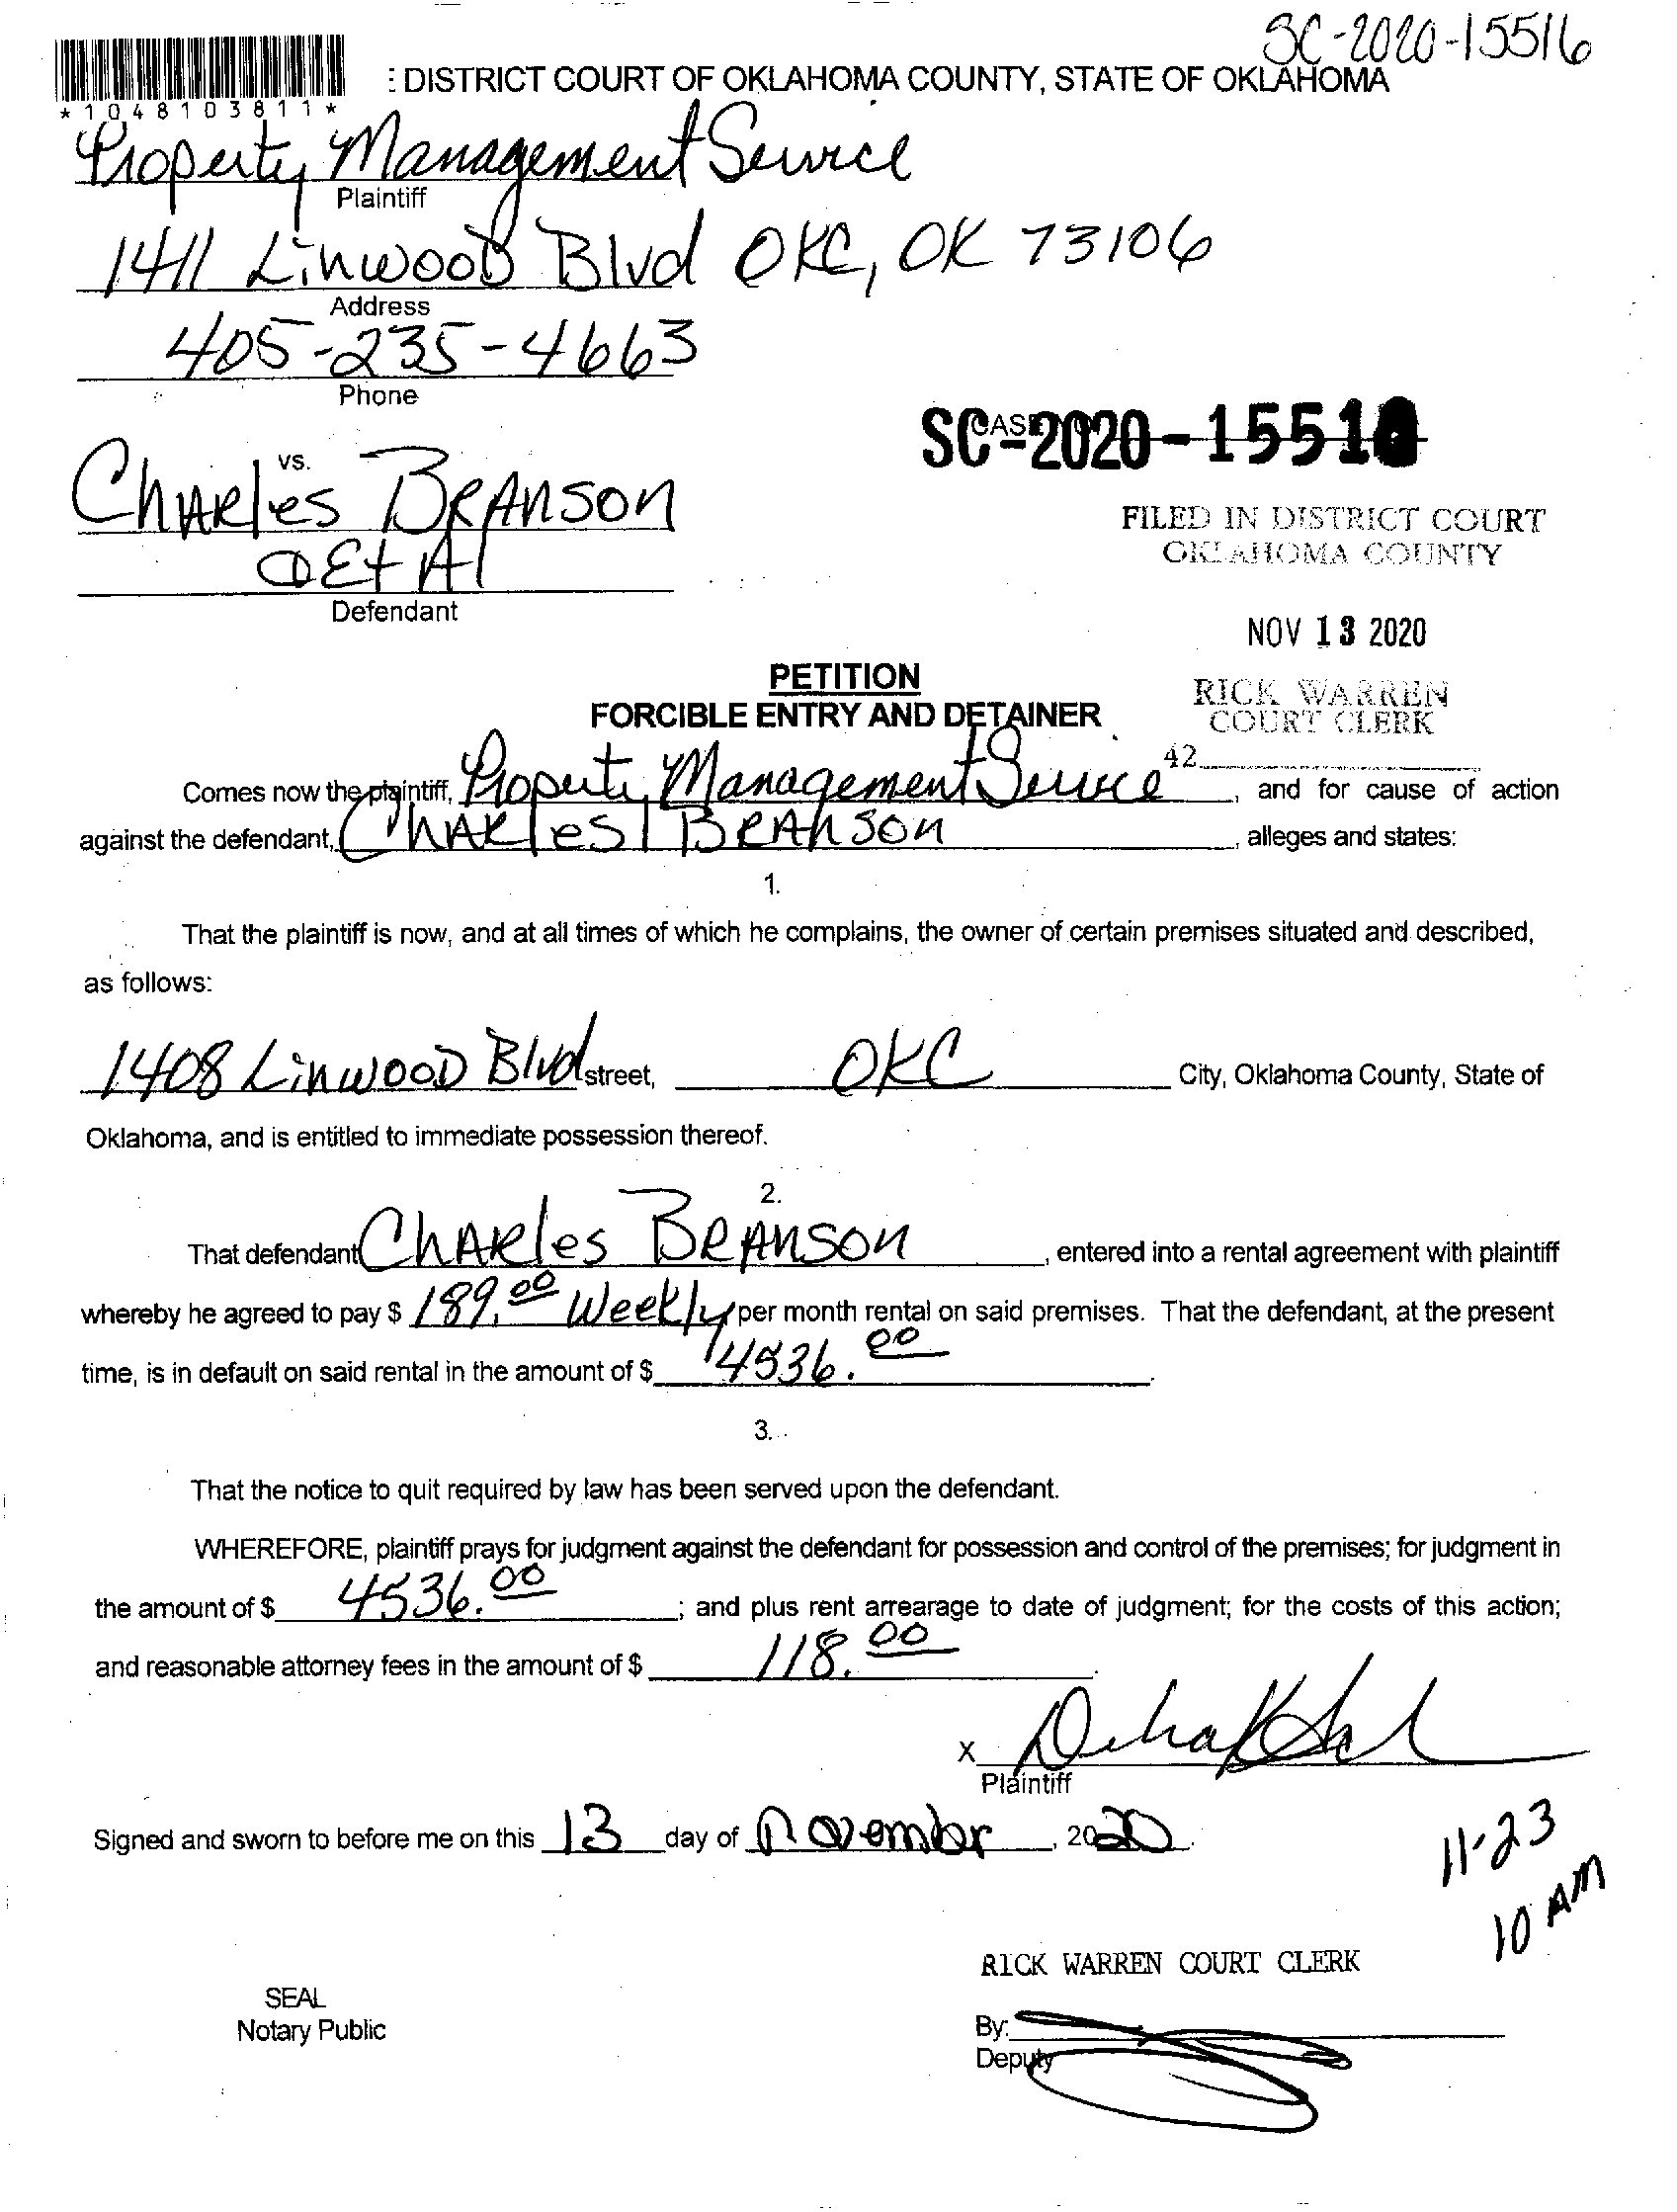 SC-2020-15516
: DISTRICT COURT OF OKLAHOMA COUNTY, STATE OF OKLAHOMA
*1048103811*
Property Management Service
Plaintiff
1411 Linwood Blvd OKC, OK 73106
Address
405-235-4663
Phone
SC-2020-15516
vs.
Charles Branson
Et Al
Defendant
FILED IN DISTRICT COURT
OKLAHOMA COUNTY
NOV 13 2020
RICK WARREN
COURT CLERK
42
PETITION
FORCIBLE ENTRY AND DETAINER
Comes now the plaintiff, Property Management Service, and for cause of action
against the defendant, Charles Branson, alleges and states:
1.
That the plaintiff is now, and at all times of which he complains, the owner of certain premises situated and described,
as follows:
1408 Linwood Blvd street, OKC City, Oklahoma County, State of
Oklahoma, and is entitled to immediate possession thereof.
2.
That defendant Charles Branson, entered into a rental agreement with plaintiff
whereby he agreed to pay $ 189.00 Weekly per month rental on said premises. That the defendant, at the present
time, is in default on said rental in the amount of $ 4536.00.
3.
That the notice to quit required by law has been served upon the defendant.
WHEREFORE, plaintiff prays for judgment against the defendant for possession and control of the premises; for judgment in
the amount of $ 4536.00; and plus rent arrearage to date of judgment; for the costs of this action;
and reasonable attorney fees in the amount of $ 118.00.
X
Plaintiff
Signed and sworn to before me on this 13 day of November, 2020.
11-23
10 AM
RICK WARREN COURT CLERK
SEAL
Notary Public
By:
Deputy